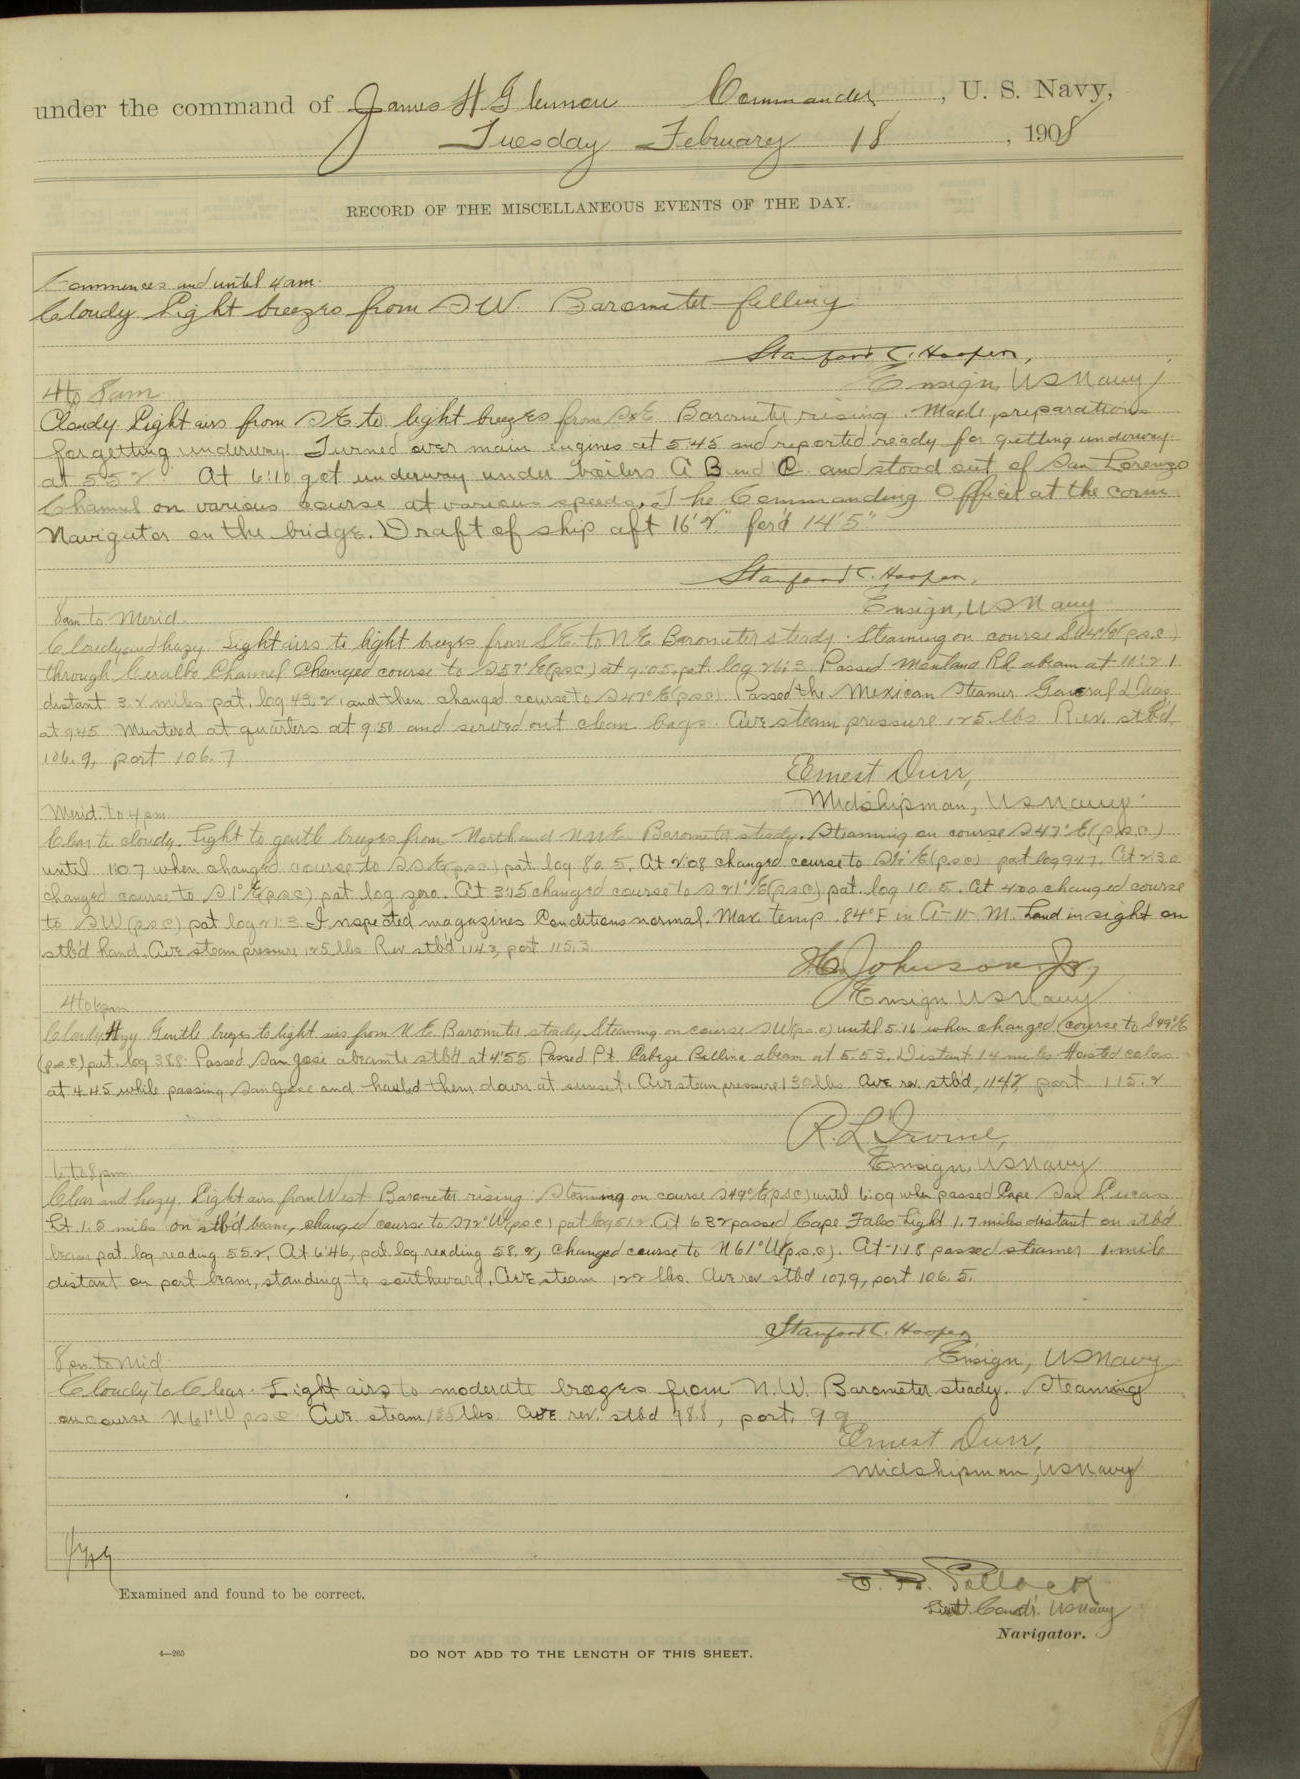 under the command of James H Glennon Commander, U. S. Navy,
Tuesday February 18, 1908
RECORD OF THE MISCELLANEOUS EVENTS OF THE DAY.
Commences and until 4 am.
Cloudy Light breezes from SW. Barometer falling
Stanford C. Hooper,
Ensign, US Navy
4 to 8 am
Cloudy Light airs from SE to light breezes from SxE Barometer rising. Made preparations
for getting underway. Turned over main engines at 5:45 and reported ready for getting underway.
at 552 At 6:10 got underway under boilers A B and C and stood out of San Lorenzo
Channel on various course at various speeds. The Commanding Officer at the conn
Navigator on the bridge. Draft of ship aft 16' 2" for'd 14' 5"
Stanford C. Hooper,
Ensign, US Navy
8 am to Merid.
Cloudy and hazy. Light airs to light breezes from SE to NE Barometer steady. Steaming on course (p.s.c.)
through Ceralbo Channel Changed course to S57°E(psc) at 9:05, pat. log 26.3 Passed Montana Rk abeam at 11:21
distant 3.2 miles pat. log 49.2 and then changed course to S47°E (p.s.c.) Passed the Mexican Steamer General
at 945 Mustered at quarters at 9:50 and served out clean bags. Ave steam pressure 125 lbs Rev. stb'd,
106.9, port 106.7
Ernest Durr,
Midshipman, US Navy.
Merid. to 4 pm
Clear to cloudy. Light to gentle breezes from North and NNE Barometer steady. Steaming on course S47°E (p.s.c.)
until 1:07 when changed course to SSE (p.s.c.) pat. log 80.5. At 2:08 changed course to E (p.s.c) pat log 94.7. At 2:30
changed course to S1°E (p.s.c) pat. log zero. At 3:15 changed course to S21°E (p.s.c) pat. log 10.5. At 4:00 changed course
to SW (p.s.c) pat log 21.3 Inspected magazines Conditions normal. Max. temp. 84°F in A-11-M. Land in sight on
stb'd hand. Ave steam pressure 125 lbs Rev stb'd 114.2, port 115.3
H Johnson Jr,
Ensign US Navy
4 to 6 pm
Cloudy Hazy Gentle breezes to light airs from N E Barometer steady. Steaming on course SW (p.s.c) until 5:16 when changed course to S49°E
(p.s.c) pat. log 38.8. Passed San Jose abeam to stb'd at 4:55 Passed Pt. abeam at 5.53. Distant 1.4 miles. Hoisted colors
at 4.45 while passing San Jose and hauled them down at sunset. Ave steam pressure 130 lbs Ave rev. stb'd, 114.2, port 115.2
R. L. Irvine,
Ensign, US Navy
6 to 8 pm
Clear and hazy. Light airs from West Barometer rising. Steaming on course S49°E (p.s.c) until 6:09 when passed Cape San Lucas
Lt. 1.5 miles on stb'd beam, changed course to S72°W (p.s.c) pat log 51.2 At 6:32 passed Cape Falso Light 1.7 miles distant on stb'd
beam pat. log reading 55.2, At 6:46, pat. log reading 58.2, changed course to N61°W (p.s.c). At 1:18 passed steamer 1 mile
distant on port beam, standing to southward. Ave steam 122 lbs. Ave rev stbd 107.9, port 106.5.
Stanford C. Hooper
Ensign, US Navy
8 pm to Mid.
Cloudy to Clear. Light airs to moderate breezes from N.W. Barometer steady. Steaming
on course N61°W psc Ave steam lbs. Ave rev. stbd 98.8, port. 99
Ernest Durr,
Midshipman, US Navy
JHG
Examined and found to be correct.
E. H. Pollock
Lieut. Comdr. US Navy
Navigator.
4—260
DO NOT ADD TO THE LENGTH OF THIS SHEET.